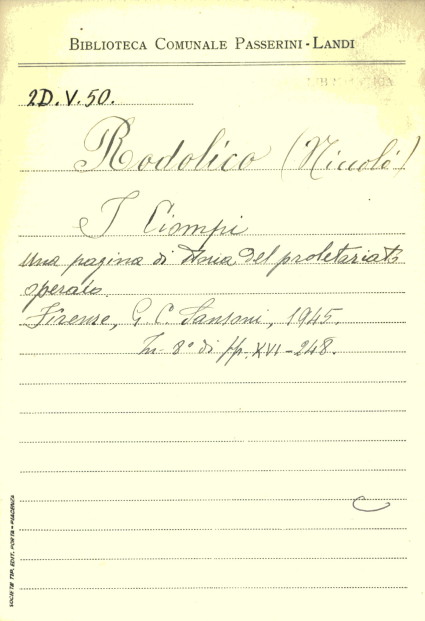 BIBLIOTECA COMUNALE PASSERINI-LANDI
2D.V.50.
Rodolico (Niccolò)
I Ciompi
Una pagina di storia del proletariato
operaio.
Firenze, G. C. Sansoni, 1945.
In 8° di pp. XVI-248.
SOCIETÀ TIP. EDIT. PORTA - PIACENZA